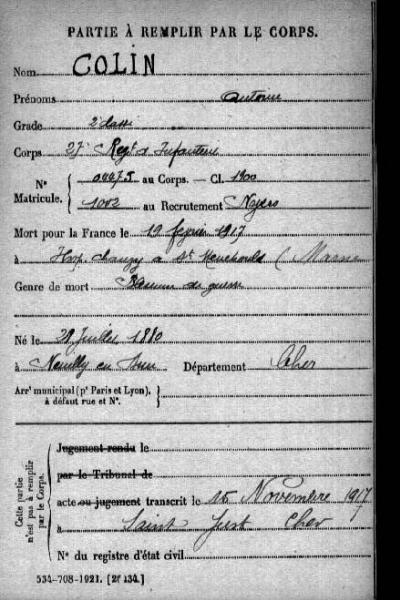 PARTIE À REMPLIR PAR LE CORPS.
Nom COLIN
Prénoms Antoine
Grade 2e classe
Corps 27e Regt d'Infanterie
N° Matricule. { 00475 au Corps. — Cl. 1900
1002 au Recrutement Nevers
Mort pour la France le 19 février 1917
à Hop. Chanzy à Ste Menehould (Marne
Genre de mort Blessures de guerre
Né le 29 Juillet 1880
à Neuilly en Dun Département Cher
Arrt municipal (pr Paris et Lyon), à défaut rue et N°. }
Cette partie n'est pas à remplir par le Corps.
Jugement rendu le
par le Tribunal de
acte ou jugement transcrit le 15 Novembre 1917
à Saint Just Cher
N° du registre d'état civil
534-708-1921. [26134.]